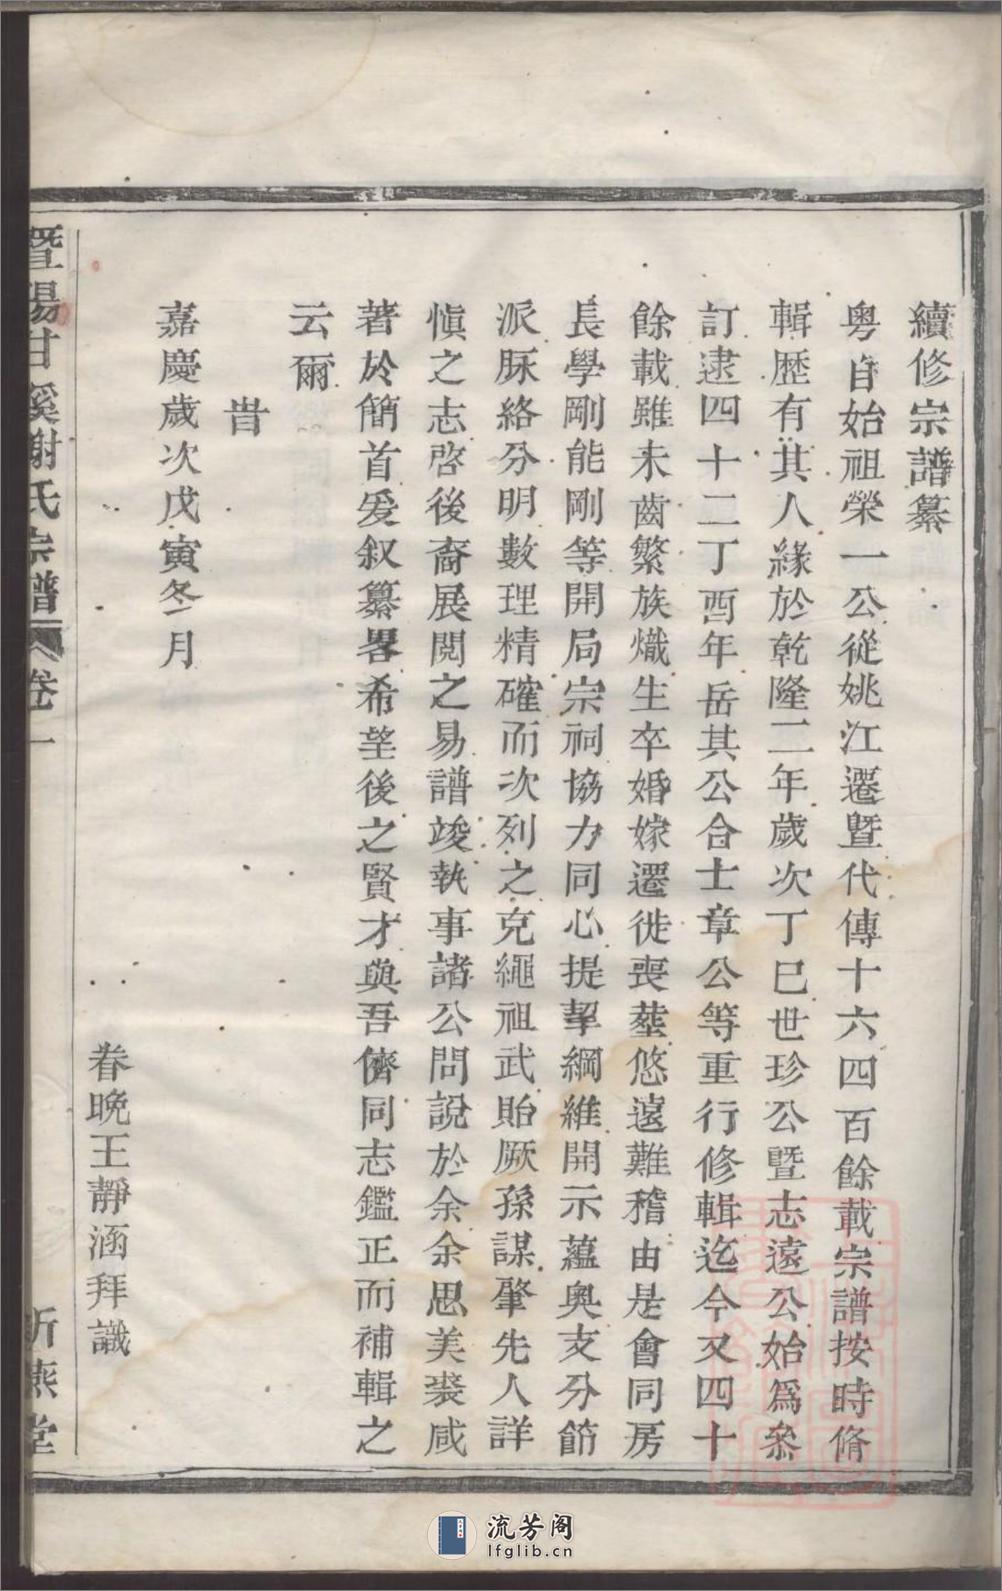 續修宗譜纂
粵自始祖榮一公從姚江遷暨代傳十六四百餘載宗譜按時脩
輯歷有其人緣於乾隆二年歲次丁巳世珍公暨志遠公始爲叅
訂逮四十二丁酉年岳其公合士章公等重行修輯迄今又四十
餘載雖未齒繁族熾生卒婚嫁遷徙喪塟悠遠難稽由是會同房
長學剛能剛等開局宗祠協力同心提挈綱維開示蘊奥支分節
派脉絡分明數理精確而次列之克繩祖武貽厥孫謀肇先人詳
愼之志啓後裔展閱之易譜竣執事諸公問說於余余思美裘咸
著於簡首爰叙纂畧希望後之賢才與吾儕同志鑑正而補輯之
云爾
旹
嘉慶歲次戊寅冬月
眷晩王靜涵拜識
暨陽甘溪謝氏宗譜 卷一
流芳阁
lfglib.cn